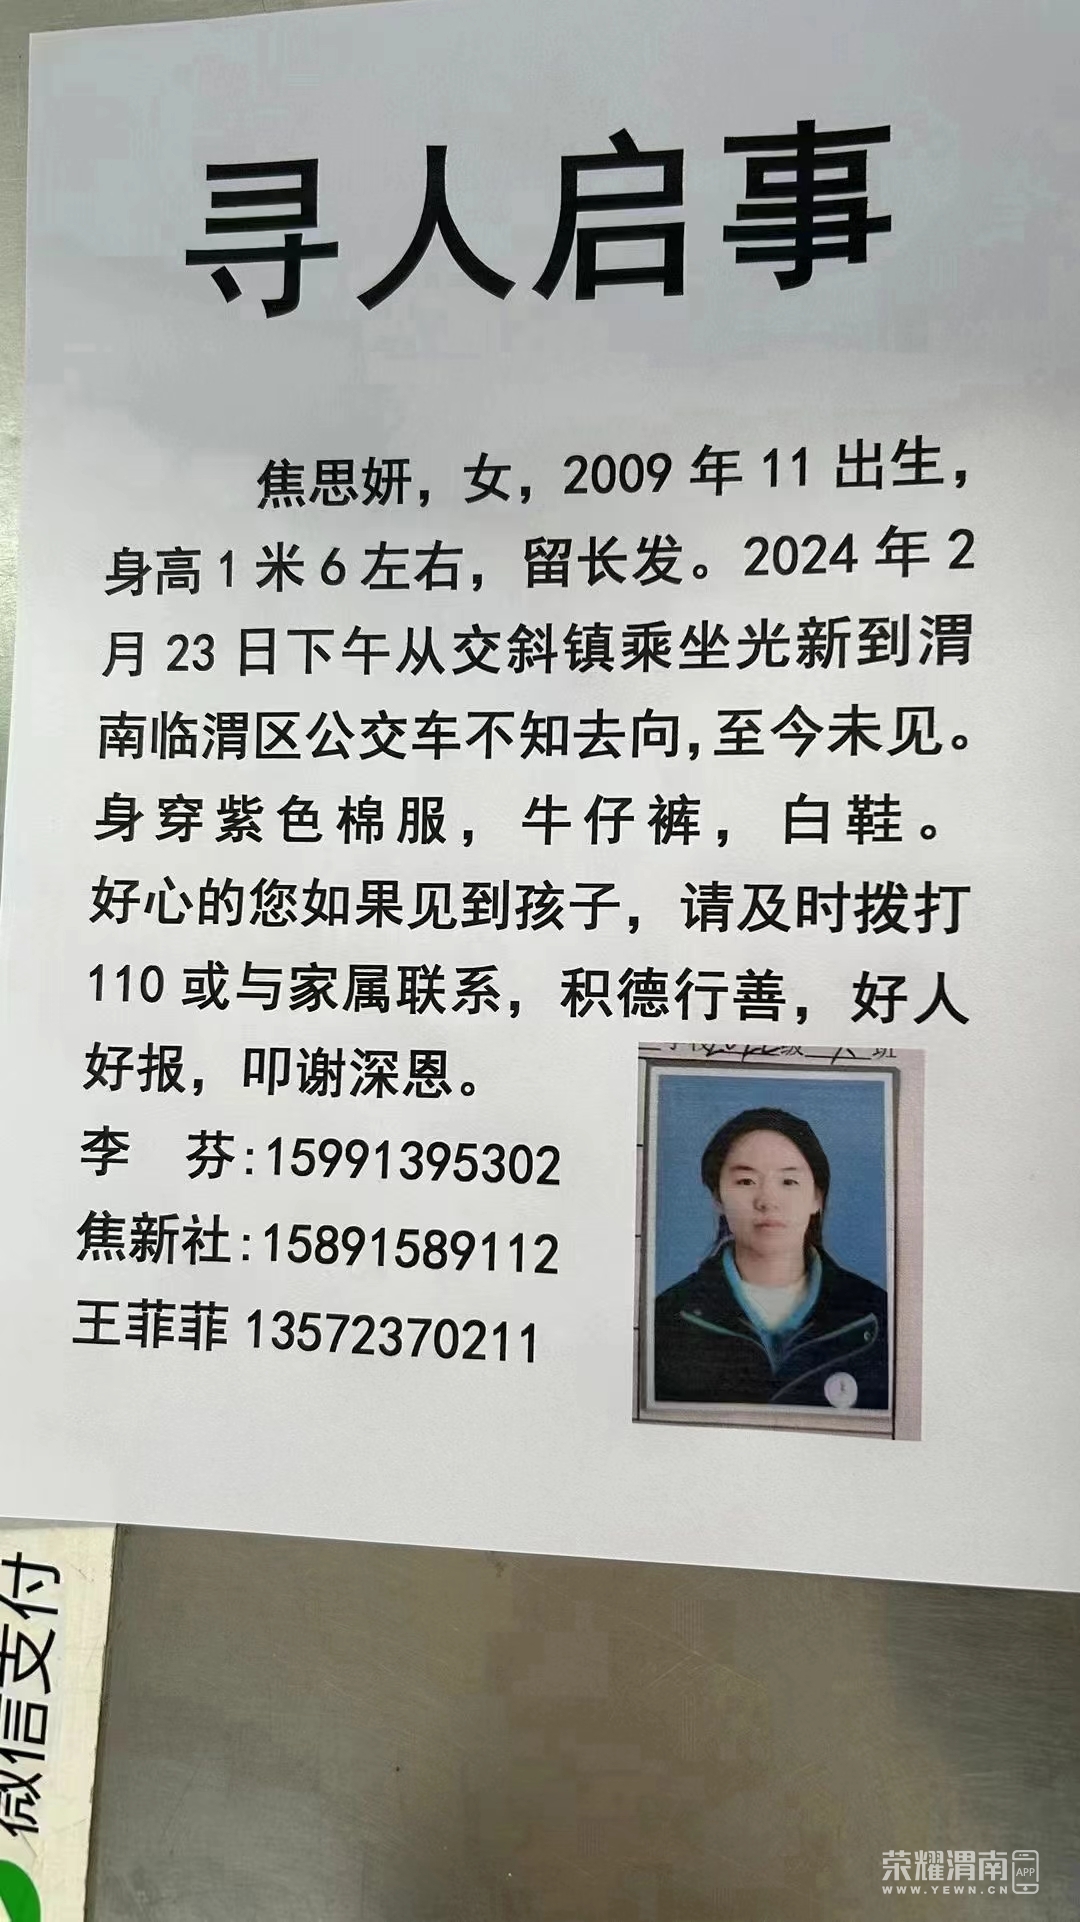 寻人启事
焦思妍，女，2009年11出生，
身高1米6左右，留长发。2024年2
月23日下午从交斜镇乘坐光新到渭
南临渭区公交车不知去向,至今未见。
身穿紫色棉服，牛仔裤，白鞋。
好心的您如果见到孩子，请及时拨打
110或与家属联系，积德行善，好人
好报，叩谢深恩。
李 芬:15991395302
焦新社:15891589112
王菲菲13572370211
微信支付
荣耀渭南APP
WWW.YEWN.CN